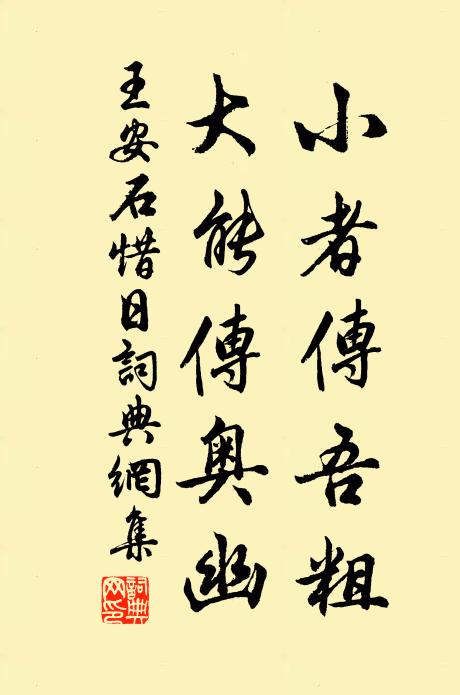 小者傳吾粗
大能傳奧幽
王安石惜日詞典網集
詞典网印